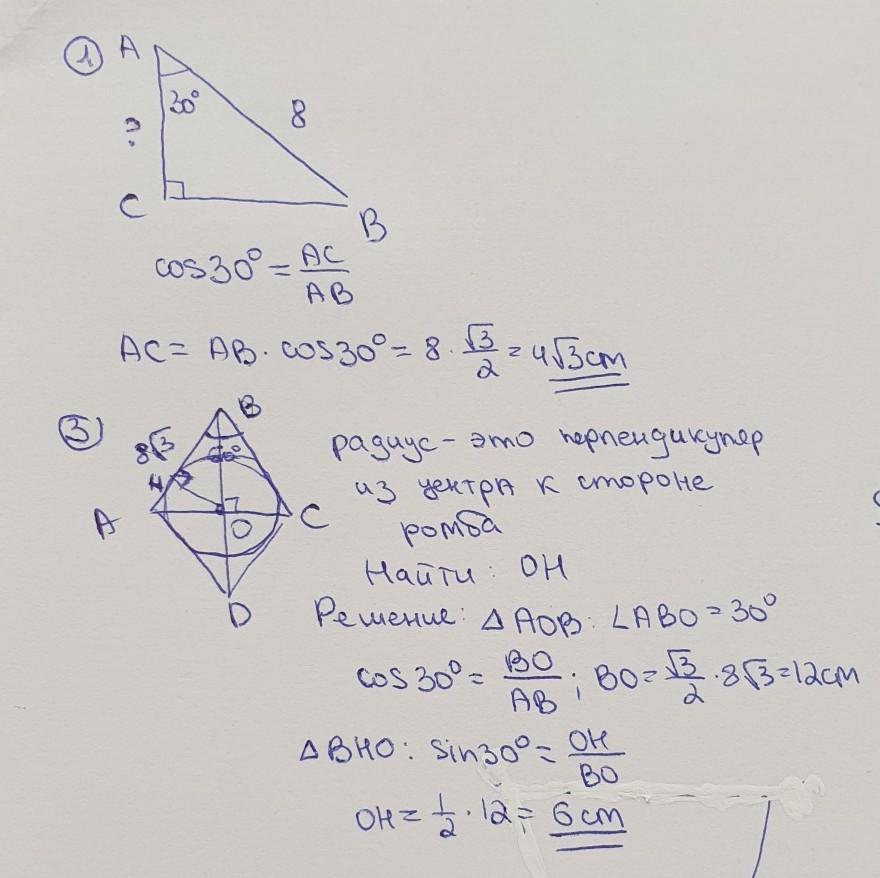 1
A
30°
8
?
C
B
cos30° = AC/AB
AC = AB · cos30° = 8 · √3/2 = 4√3 cm
3
B
8√3
60°
H
A
O
C
D
радиус - это перпендикуляр
из центра к стороне
ромба
Найти: OH
Решение: △AOB: ∠ABO = 30°
cos30° = BO/AB; BO = √3/2 · 8√3 = 12cm
△BHO: sin30° = OH/BO
OH = 1/2 · 12 = 6cm